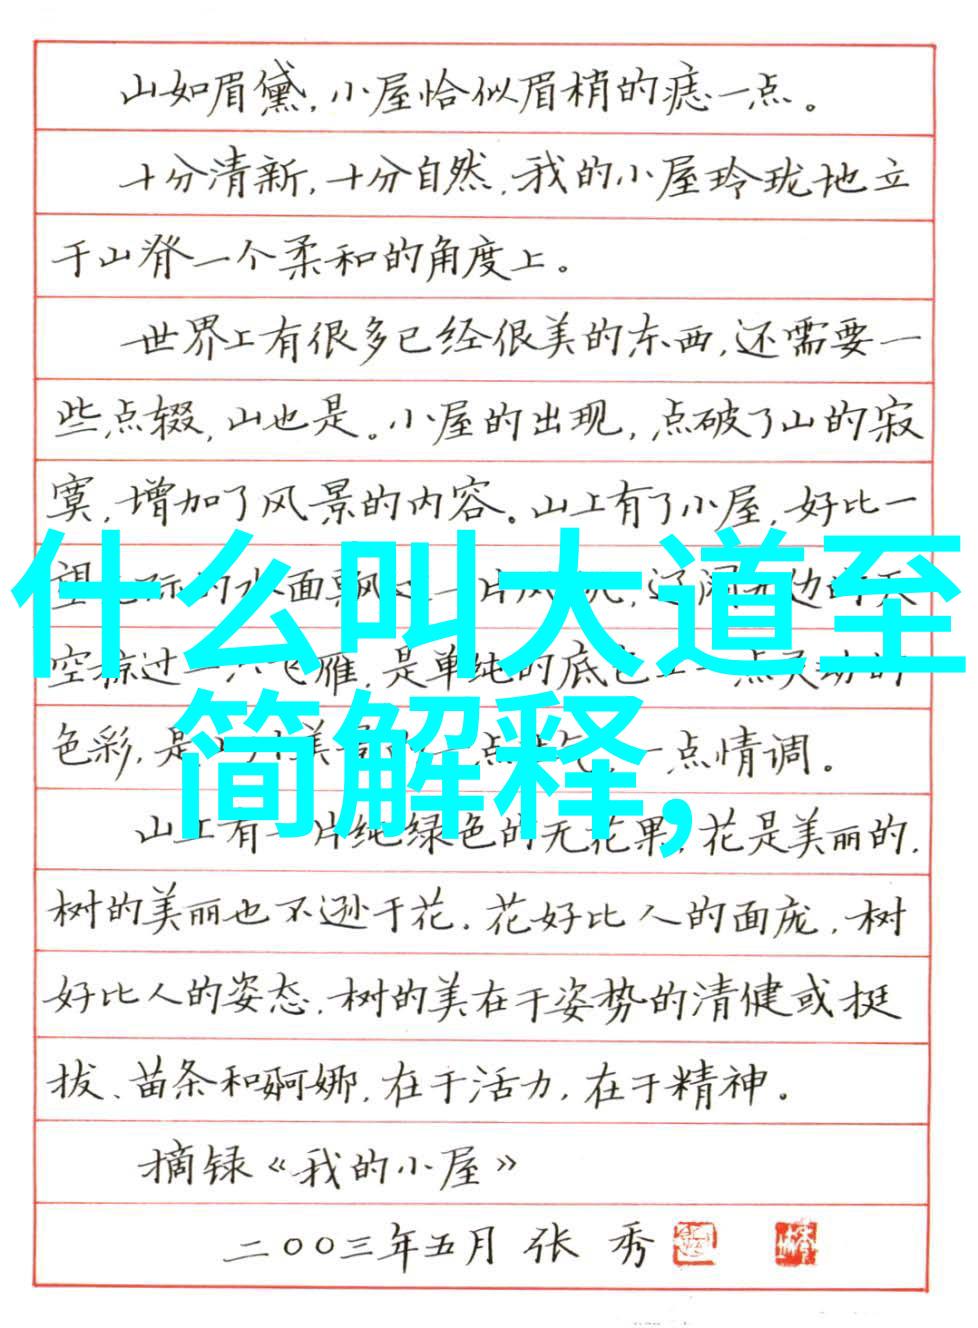 山如眉黛，小屋恰似眉梢的痣一点。
十分清新，十分自然，我的小屋玲珑地立
于山脊一个柔和的角度上。
世界上有很多已经很美的东西，还需要一
些点缀，山也是。小屋的出现，点破了山的寂
寞，增加了风景的内容。山上有了小屋，好比一
什么叫大道至
望 的水面飘 一片风 ，辽阔无边的天
空掠过一只飞雁，是单纯的底色上一点灵动的
简解释，
色彩，是 美景 一点 一点情调。
山上有一片纯绿色的无花果，花是美丽的，
树的美丽也不逊于花。花好比人的面庞，树
好比人的姿态。树的美在于姿势的清健或挺
拔、苗条和婀娜，在于活力，在于精神。
摘录《我的小屋》
二〇〇三年五月 张 秀